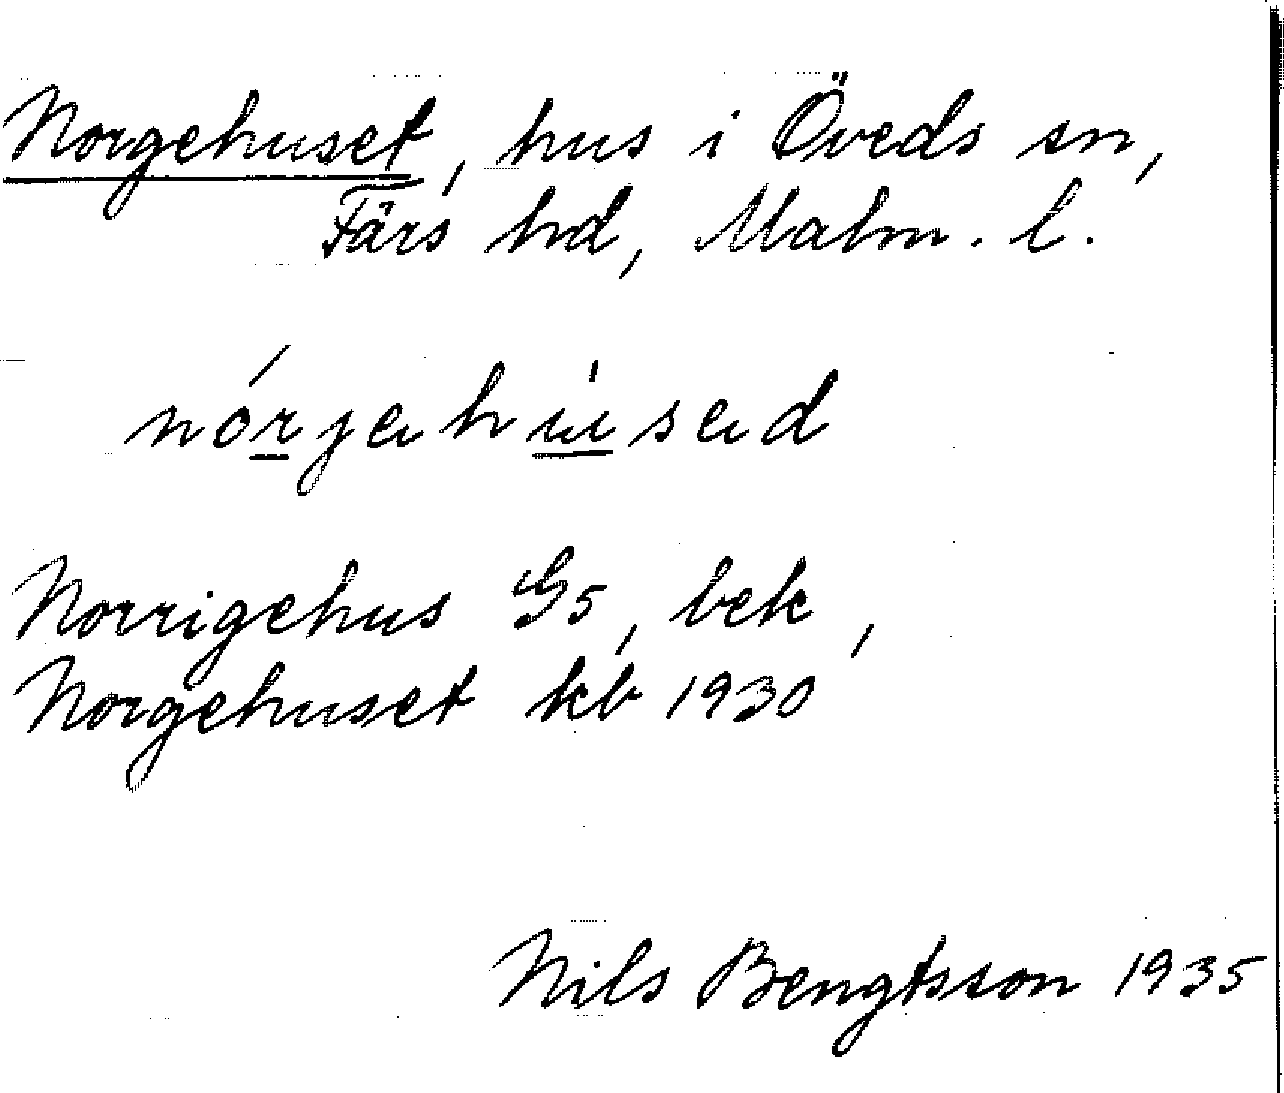 Norgehuset, hus i Öveds sn,
Färs hd, Malm. l.
nórjahúsad
Norrigehus G5, bek,
Norgehuset kb 1930
Nils Bengtsson 1935